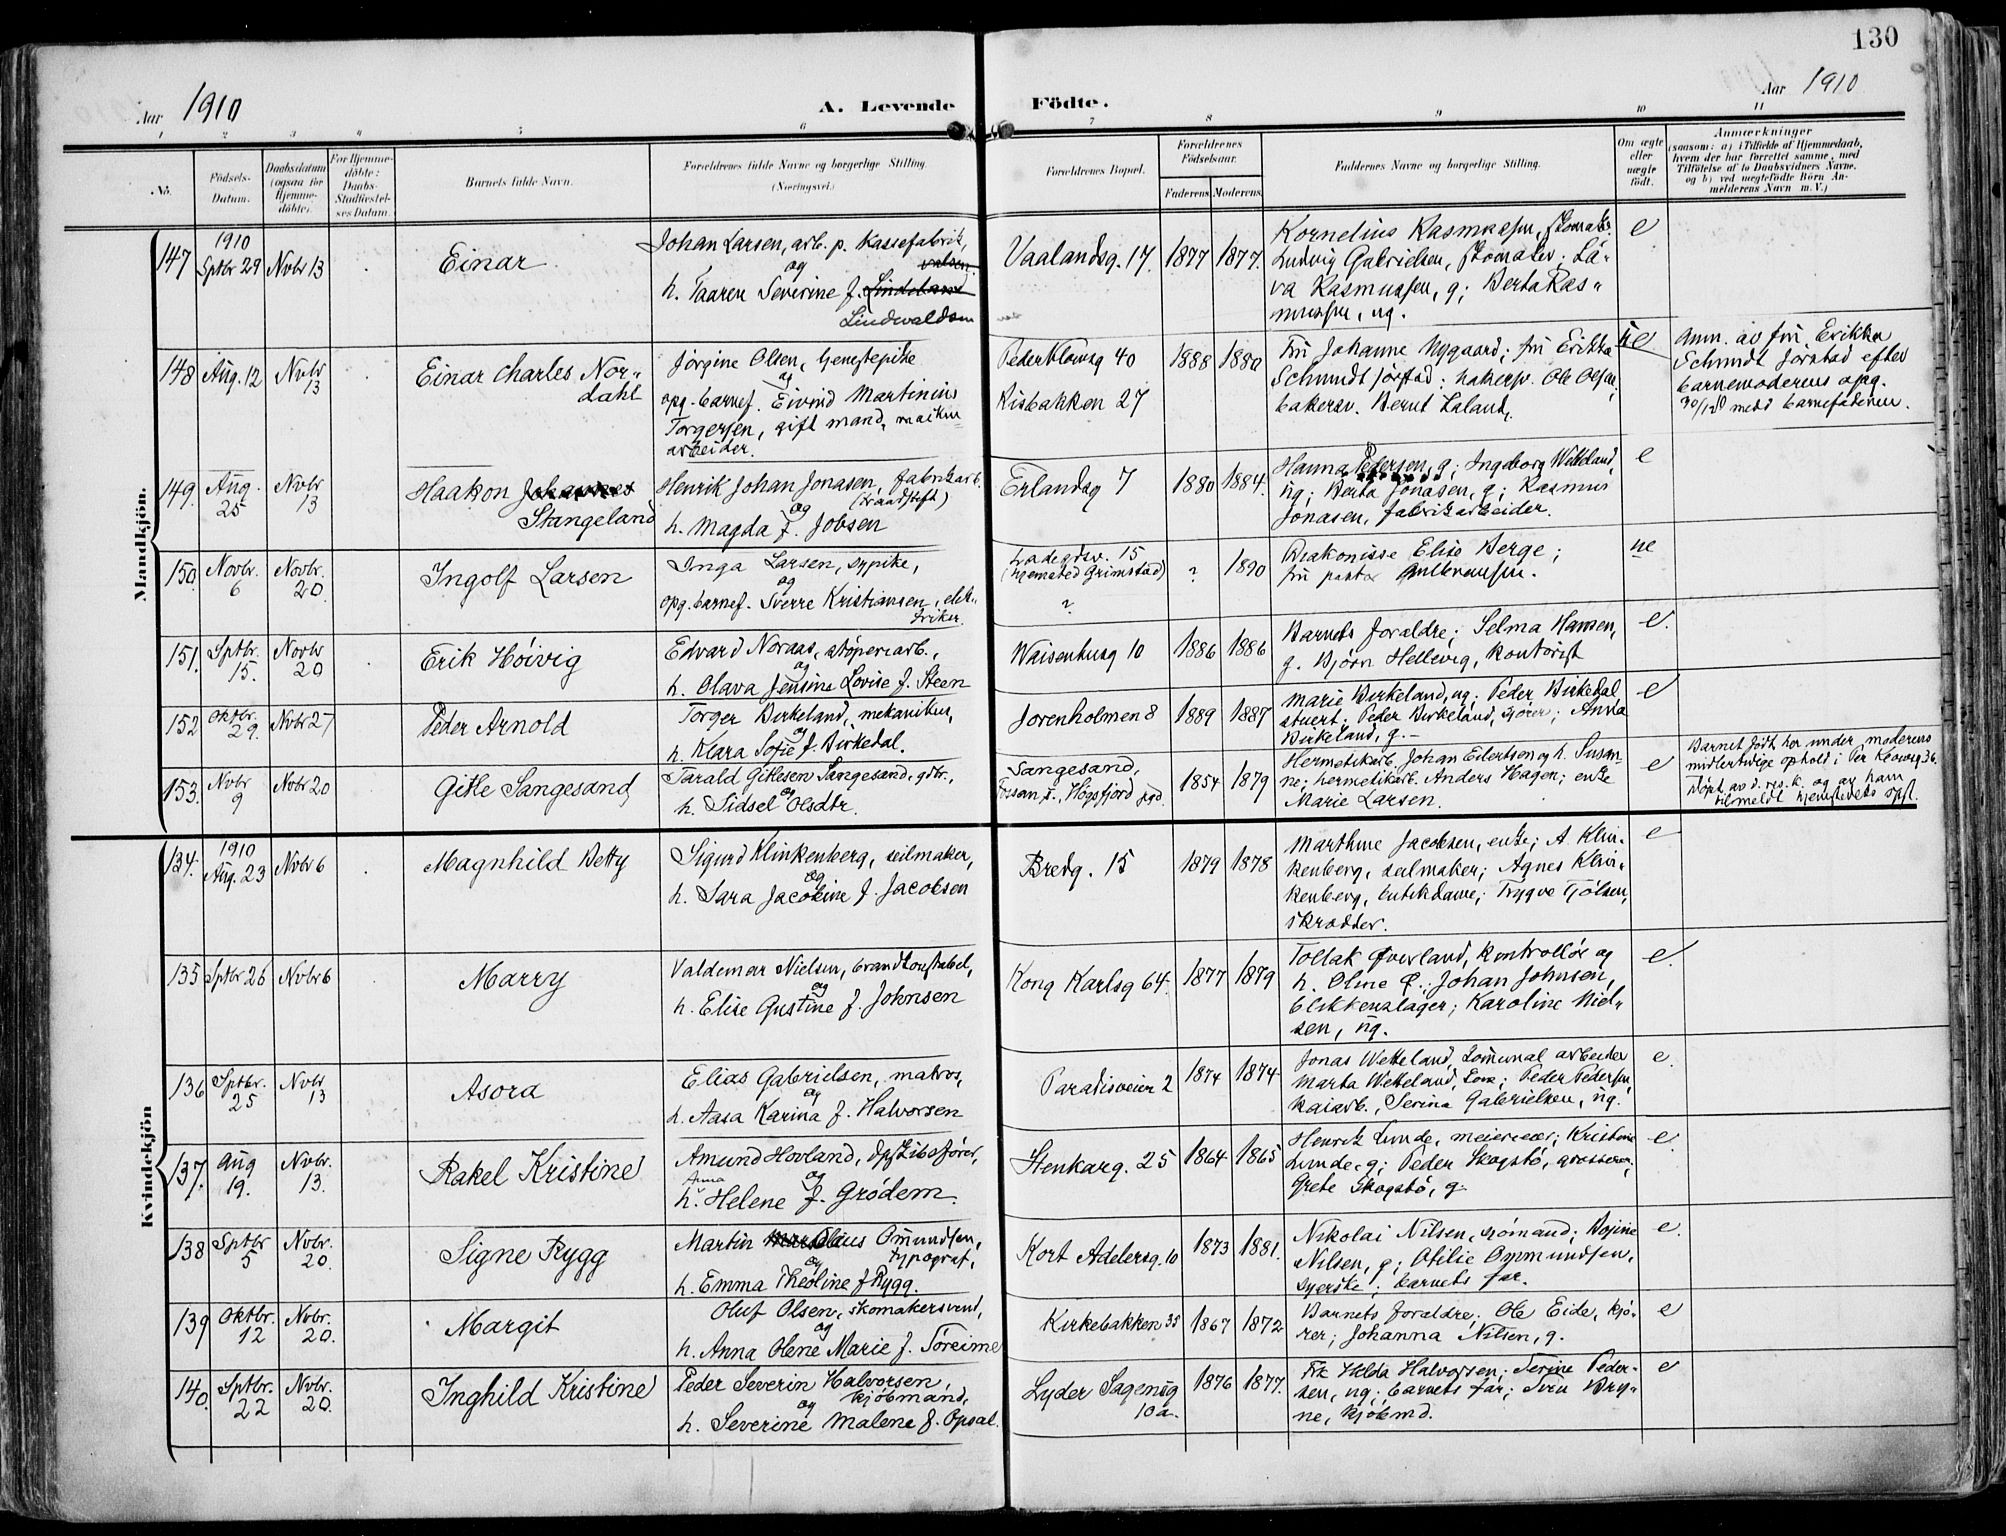 130
Aar 1910 A. Levende Födte. Aar 1910
1 2 3 4 5 6 7 8 9 10 11
No. Födsels-Datum. Daabsdatum (ogsaa for Hjemmedöbte). For Hjemmedöbte: Daabs-Stadfæstelses Datum. Barnets fulde Navn. Forældrenes fulde Navne og borgerlige Stilling. (Næringsvei.) Forældrenes Bopæl. Forældrenes Födselsaar. Faderens Moderens. Faddernes Navne og borgerlige Stilling. Om ægte eller uægte födt. Anmærkninger (saasom: a) i Tilfælde af Hjemmedaab, hvem der har forrettet samme, med Tilföielse af to Daabsvidners Navne, og b) ved uægtefödte Börn Anmelderens Navn m. V.)
Mandkjön.
147 1910 Sptbr 29 Nvbr 13 Einar
Johan Larsen, arb. p. Kassefabrik,
og
h. Taaren Severine f. Lindeland
Lindwaldsen
Vaalandsg. 17. 1877 1877.
Kornelius Rasmussen,
Ludvig Gabrielsen, skomaker; La-
va Rasmussen, g; Berta Ras-
mussen, ug.
e
148 Aug. 12 Nvbr 13 Einar Charles Nor-
dahl
Jörgine Olsen, tjenestepike
og
opg. barnef. Eivind Martinius
Torgersen, gift mand, maskin-
arbeider.
Peder Klowsg 40
Risbakken 27
1888 1880
Fru Johanne Nygaard; fru Erikka
Schmidt Jörstad; bakersv. Ole Olsen,
bakersv. Bernt Laland.
ue
Anm. av fru Erikka
Schmidt Jörstad efter
barnemoderens opg.
30/12 10 med barnefaderen.
149. Aug. 25 Nvbr 13 Haakon Johannes
Stangeland
Henrik Johan Jonasen, fabrikarb.
(traadstift)
og
h. Magda f. Jobsen
Erlandsg 7 1880 1884.
Hanna Petersen, g; Ingeborg Wetteland,
ug; Berta Jonasen, g; Rasmus
Jonasen, fabrikarbeider.
e
150. Novbr. 6 Novbr. 20. Ingolf Larsen
Inga Larsen, sypike,
og
opg. barnef. Sverre Kristiansen, elek-
triker.
Ladegdsv. 15
(hjemsted Grimstad)
?
? 1890
Diakonisse Elise Berge;
fru pastor Gulbransen.
ue
151. Sptbr. 15. Novbr 20 Erik Höivig
Edvard Noraas, stöperiarb.,
og
h. Olava Jensine Lovise f. Steen
Waisenhusg 10 1886 1886
Barnets foraldre; Selma Hansen,
g. Björn Hellevig, kontorist
e.
152 Oktbr. 29. Nvbr 27 Peder Arnold
Torger Birkeland, mekanikus,
og
h. Klara Sofie f. Birkedal.
Jorenholmen 8 1889 1887
Marie Birkeland, ug; Peder Birkedal
stuert; Peder Birkeland, kjörer; Anna
Birkeland, g. -
e
153. Nvbr 9 Nvbr 20 Gitle Sangesand
Tarald Gitlesen Sangesand, gdbr.,
og
h. Sidsel Olsdtr.
Sangesand,
Fossan s., Högsfjord pgd.
1854 1879
Hermetikarb. Johan Eilertsen og h. Susan-
ne; hermetikarb. Anders Hagen; enke
Marie Larsen.
e
Barnet födt her under moderens
midlertidige ophold i Per Klowsg 36.
Döpt av d. res. k. og av ham
tilmeldt hjemstedets spst.
Kvindekjön
134. 1910 Aug. 23 Nvbr 6 Magnhild Betty
Sigurd Klinkenberg, seilmaker,
og
h. Sara Jacobine f. Jacobsen
Bredg. 15 1879 1878
Marthine Jacobsen, enke; A. Klin-
kenberg, seilmaker; Agnes Klin-
kenberg, butikdame; Trygve Tjölsen,
skrædder.
e
135 Sptbr 26 Nvbr 6 Marry
Valdemar Nielsen, brandkonstabel,
og
h. Elise Gustine f. Johnsen
Kong Karlsg 64. 1877 1879
Tollak Qverland, kontrollör og
h. Oline Q.; Johan Johnsen,
blikkenslager; Karoline Niel-
sen, ug.
e.
136 Sptbr. 25 Nvbr 13 Asora
Elias Gabrielsen, matros,
og
h. Aasa Karina f. Halvorsen
Paradisveien 2 1874 1874
Jonas Wetteland, komunal arbeider
Marta Wetteland, kone; Peder Pedersen,
kaiarb., Serina Gabrielsen, ug.
e.
137. Aug 19. Nvbr. 13. Rakel Kristine
Amund Hovland, dpskibsförer,
Anna og
h. Helene f. Grödem.
Stenkarg. 25 1864 1865
Henrik Lunde, meierieier; Kristine
Lunde, g; Peder Skogsbö, grosserer;
Grete Skogsbö, g.
e
138 Sptbr 5 Nvbr. 20. Signe Rygg
Martin Omundsen,
typograf,
og
h. Emma Theoline f Rygg.
Kort Adelersg. 10 1873 1881.
Nikolai Nilsen, sjömand; Bojine
Nilsen, g; Otilie Ommundsen,
syerske; barnets far.
e.
139 Oktbr. 12 Nvbr. 20. Margit
Oluf Olsen, skomakersvend,
og
h. Anna Olene Marie f. Töreime
Kirkebakken 35 1867 1872
Barnets foraldre; Ole Eide, kjö-
rer; Johanna Nilsen, g.
e
140. Sptbr. 22 Nvbr. 20. Inghild Kristine
Peder Severin Halvorsen,
kjöbmand,
og
h. Severine Malene f. Opsal.
Lyder Sagensg
10a.
1876 1877.
Frk Hilda Halvorsen; Serine Peder-
sen, ug; barnets far; Sven Bry-
ne, kjöbmd.
e